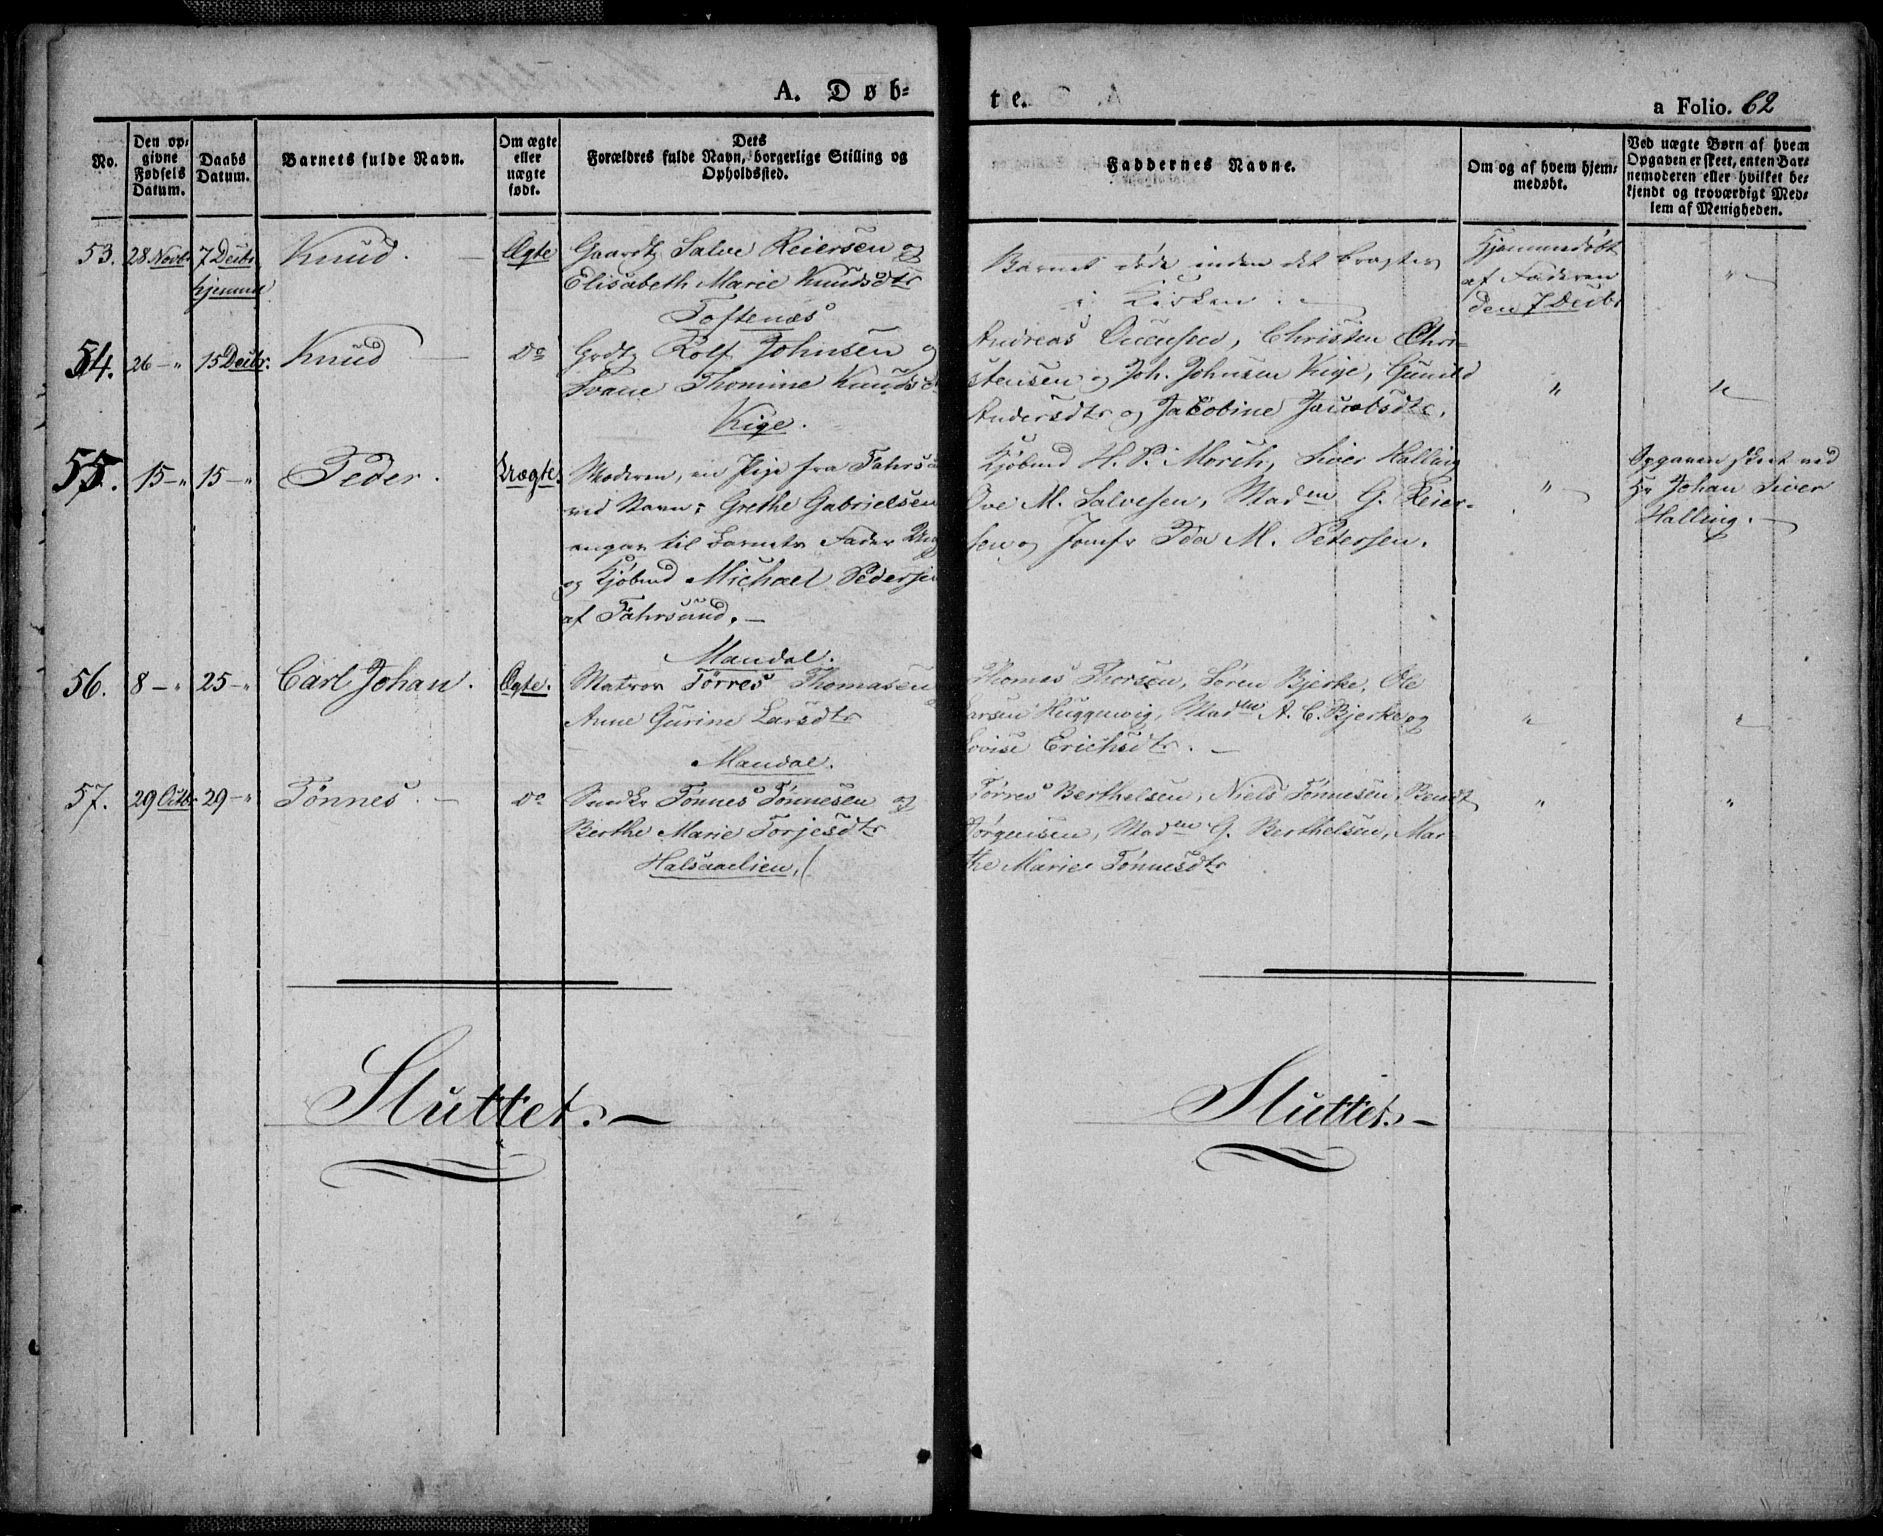 A. Døb-
te.
a Folio. 62
No.
Den op-
givne
Fødsels
Datum.
Daabs
Datum.
Barnets fulde Navn.
Om ægte
eller
uægte
født.
Dets
Forældres fulde Navn, borgerlige Stilling og
Opholdssted.
Faddernes Navne.
Om og af hvem hjem-
medøbt.
Ved uægte Børn af hvem
Opgaven er skeet, enten Bar-
nemoderen eller hvilket be-
kjendt og troværdigt Med-
lem af Menigheden.
53. 28 Novbr 7 Decbr. Knud. — Ægte Gaardr Salve Reiersen og
hjemmed Elisabeth Marie Knudsdtr
Toftenæs
Barnet døde inden det bragtes
i Kirken. —
Hjemmedøbt
af Faderen
den 7 Decbr
"
54. 26 — " 15 Decbr. Knud — Do Grdr Rolf Johnsen og
Svane Thomine Knudsd
Kige.
Andreas Ovensen, Christen Chri-
stensen og Joh. Johnsen Kige, Gunild
Andersdtr og Jakobine Jacobsdtr.
" "
55. 15 — " 15 — " Peder. Uægte. Moderen, en Pige fra Fahrs
ved Navn: Grethe Gabrielsen
angav til Barnets Fader
og Kjøbmd Michael Pedersen
af Fahrsund. —
Kjøbmd H. P. Morch, Siver Halling
Ove M. Salvesen, Madm G. Reier-
sen og Jomfr Ida M. Petersen.
" —
Opgaven skeet ved
Hr Johan Siver
Halling. —
Mandal.
56. 8 — " 25 — " Carl Johan. Ægte. Matros Tørres Thomasen
Anne Gurine Larsdtr
Thomas Thorsen, Søren Bjerke, Ole
Larsen Huggenvig, Madm A. C. Bjerke og
Lovise Erichsdtr. —
" "
Mandal.
57. 29 Octbr 29 — " Tönnes. — Do Snedkr Tönnes Tönnesen og
Berthe Marie Torjesdtr
Halsaaelien,
Tørres Berthelsen, Niels Tønnesen, Bendt
Jörgensen, Madm G. Berthelsen, Mar-
the Marie Tønnesdtr
" "
Sluttet. —
Sluttet. —